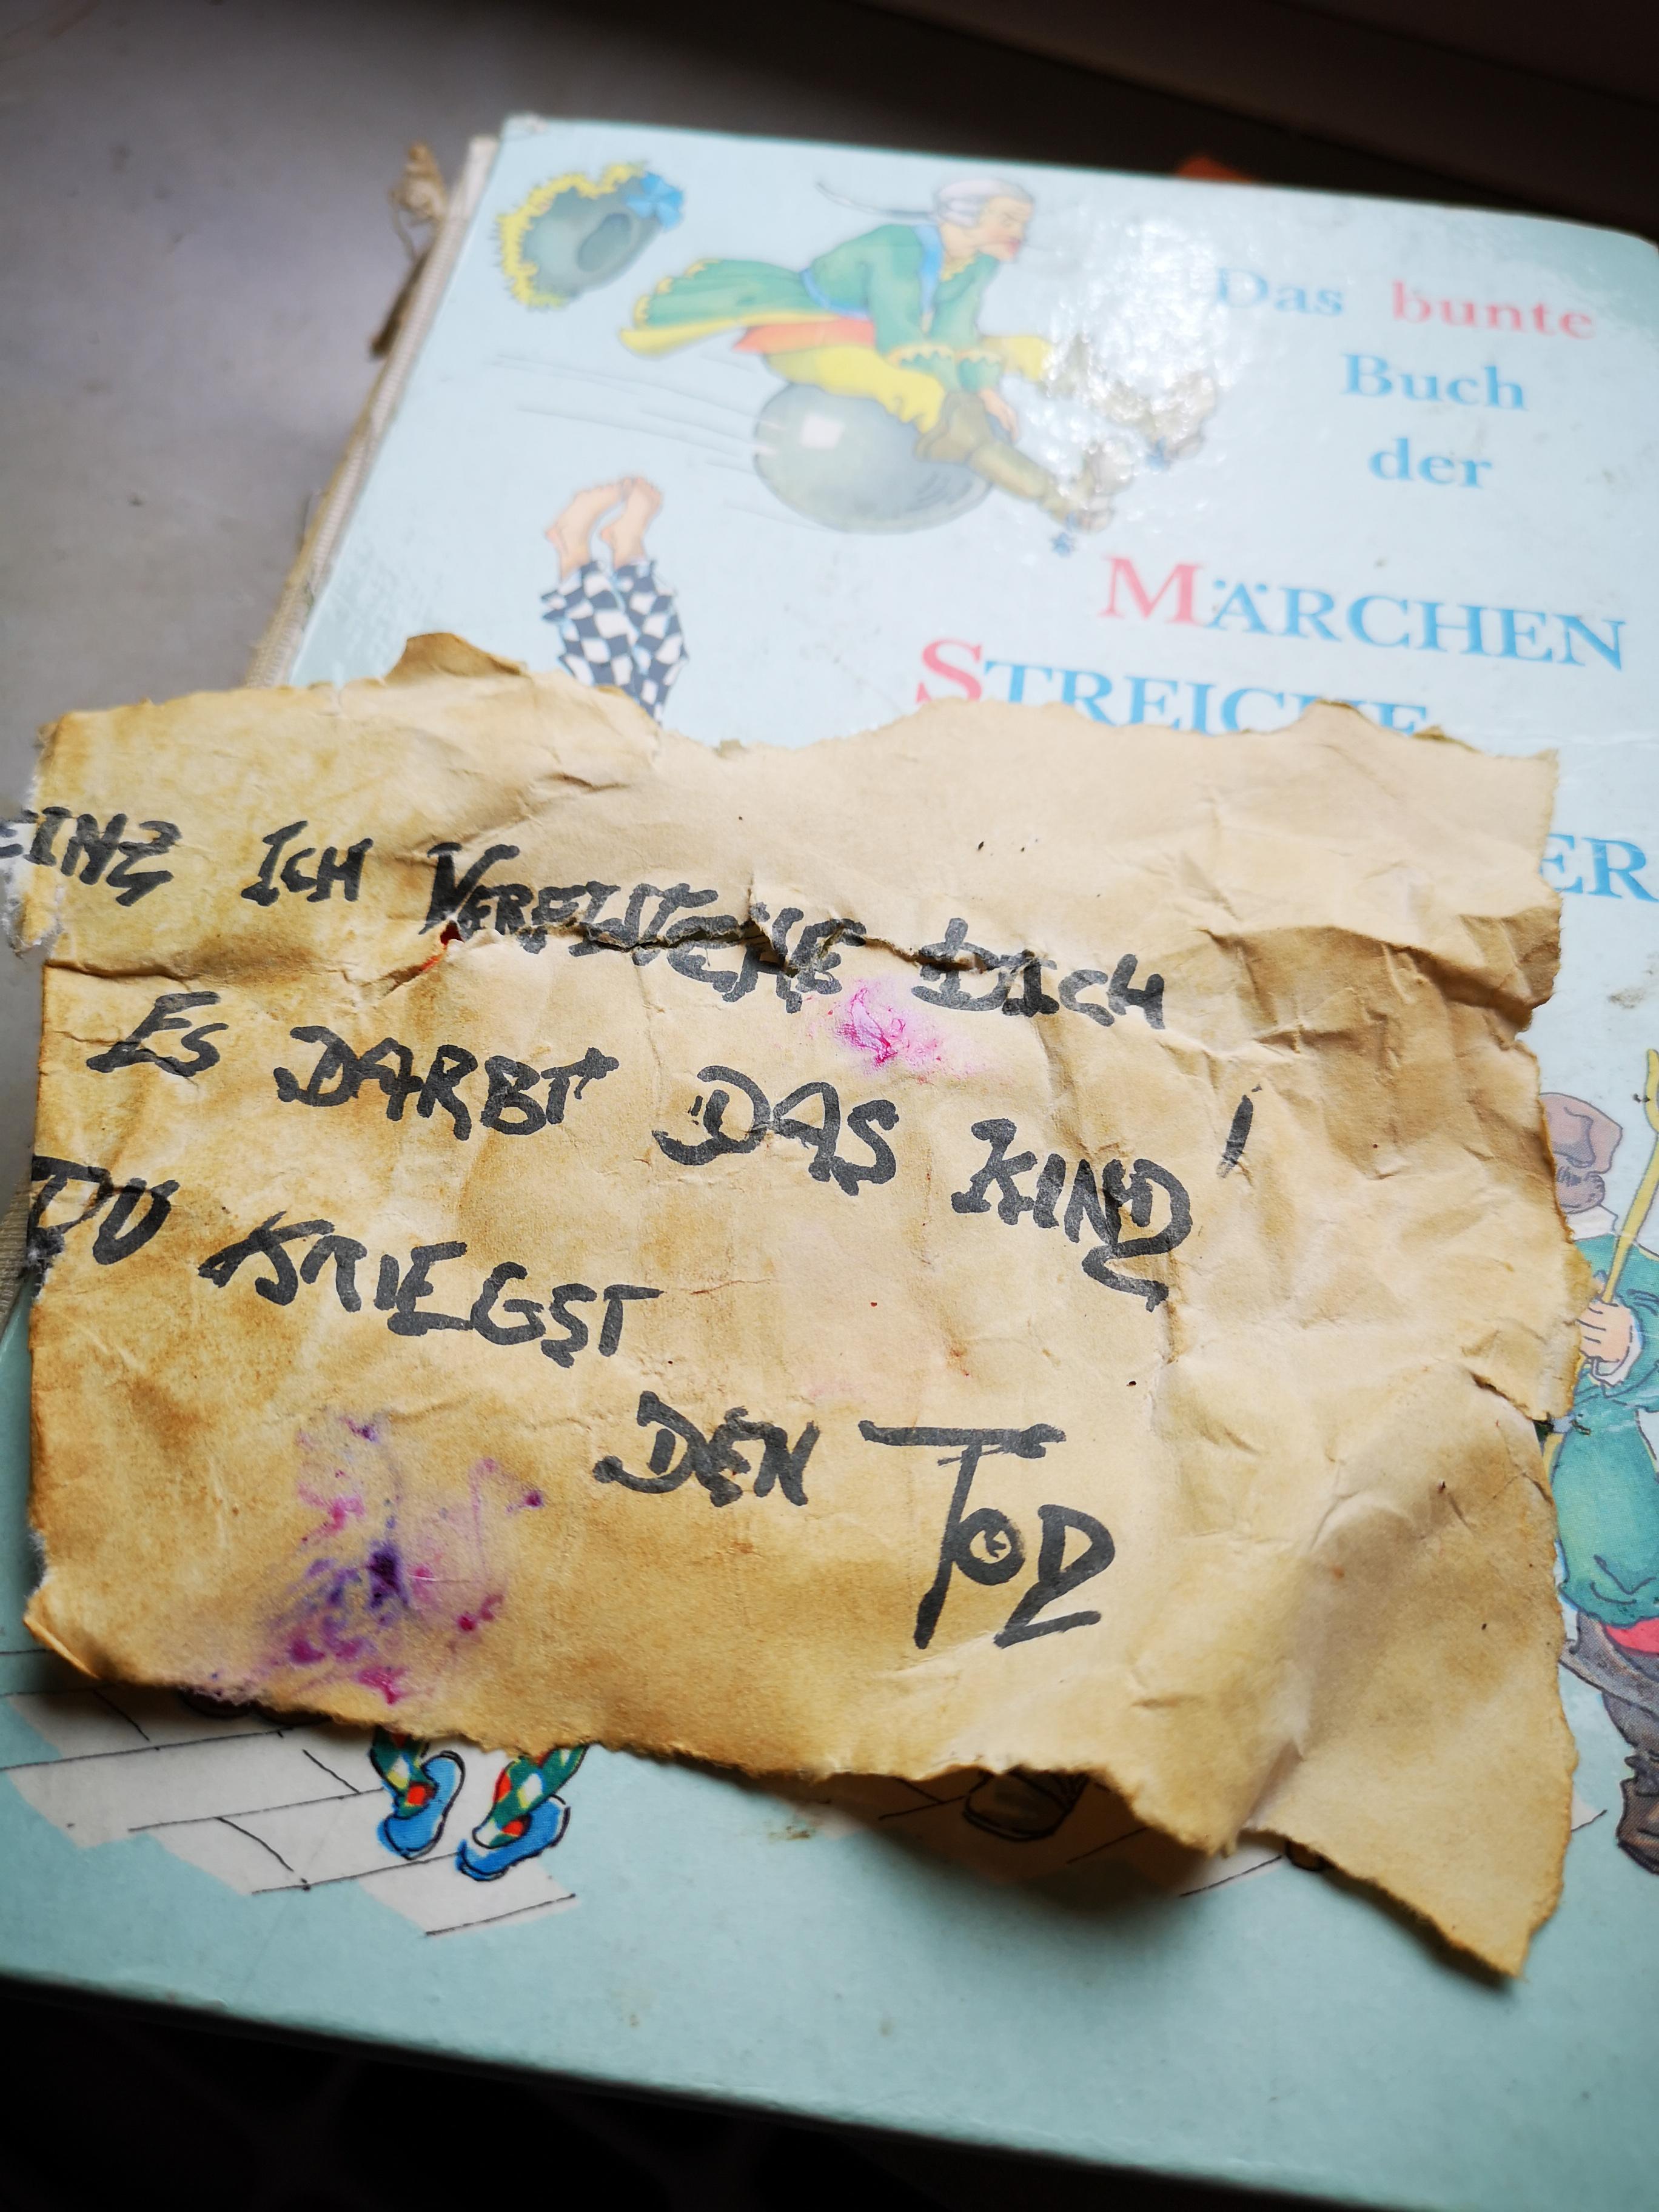 Das bunte
Buch
der
MÄRCHEN
STREICHE
ER
EINZ ICH VERFLUCHE DICH
ES DARBT DAS KIND!
DU KRIEGST
DEN TOD